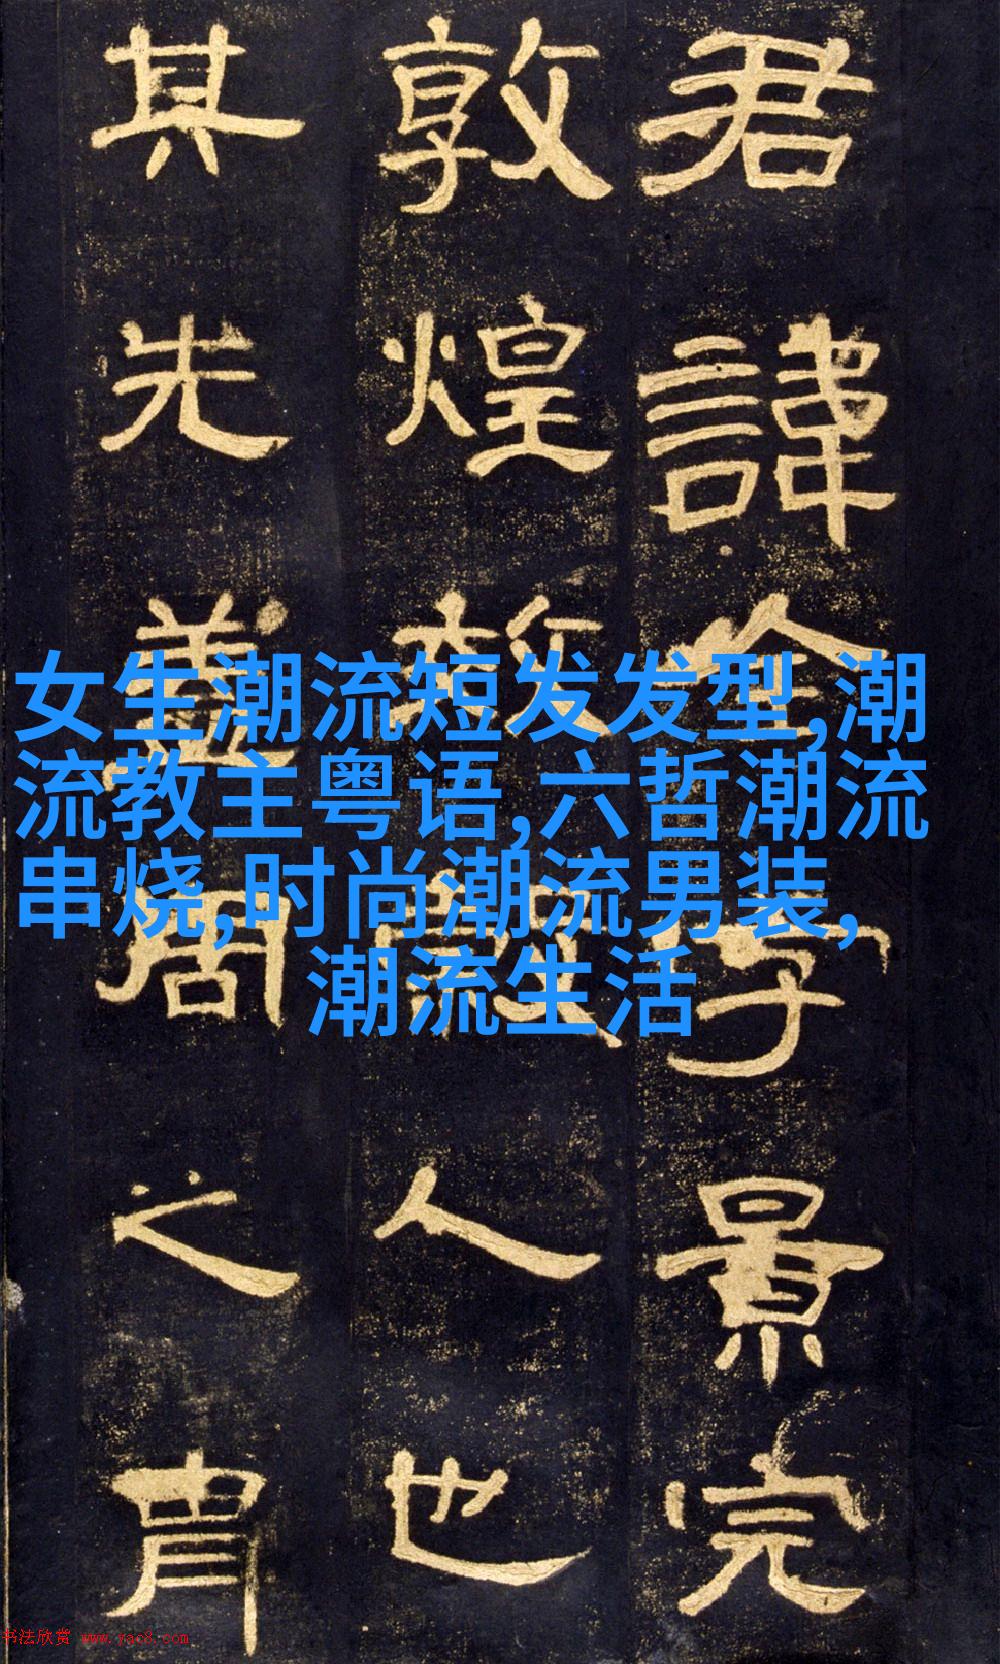 君諱全字景完
敦煌效穀人也
其先蓋周之胄
女生潮流短发发型,潮
流教主粤语,六哲潮流
串烧,时尚潮流男装,
潮流生活
书法欣赏 www.yac8.com